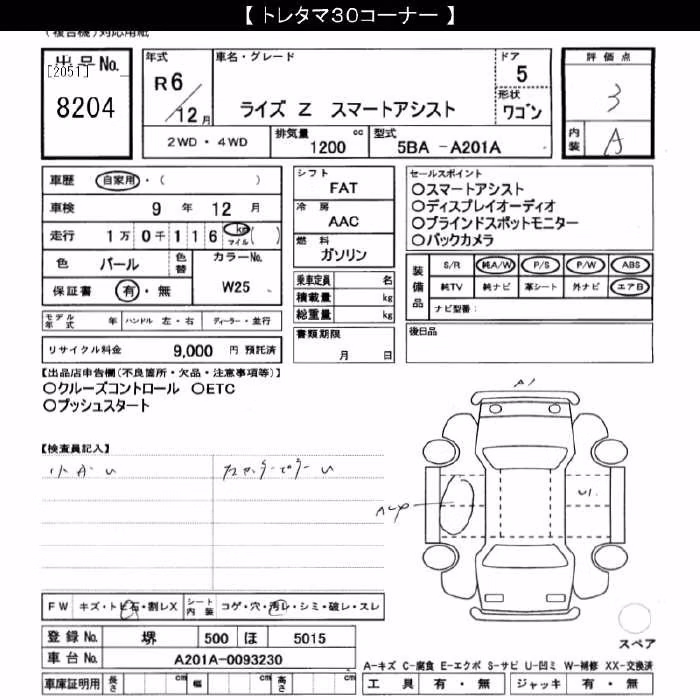 【 トレタマ30コーナー 】
(複合機)対応用紙
出品No.
[2051]
8204
年式
R6
12月
車名・グレード
ライズ Z スマートアシスト
ドア
5
形状
ワゴン
2WD・4WD
排気量 cc
1200
型式
5BA -A201A
評価点
3
内装
A
車歴 自家用・( )
車検 9 年 12 月
走行 1万 0千 1 1 6 km マイル ( )
色 パール
色替
カラーNo.
W25
保証書 有・無
シフト
FAT
冷房
AAC
燃料
ガソリン
乗車定員 名
積載量 kg
総重量 kg
書類期限
月 日
セールスポイント
○スマートアシスト
○ディスプレイオーディオ
○ブラインドスポットモニター
○バックカメラ
装備品
S/R 純A/W P/S P/W ABS
純TV 純ナビ 革シート 外ナビ エアB
ナビ型番:
後日品
モデル年式 年 ハンドル 左・右 ディーラー・並行
リサイクル料金 9,000 円 預託済
【出品店申告欄(不良箇所・欠品・注意事項等)】
○クルーズコントロール ○ETC
○プッシュスタート
【検査員記入】
A1
U1
FW キズ・トビ石・割レX
シート内装 コゲ・穴・汚レ・シミ・破レ・スレ
登録No. 堺 500 ほ 5015
車台No. A201A-0093230
車庫証明用 長さ cm 幅 cm 高さ cm
スペア
A-キズ C-腐食 E-エクボ S-サビ U-凹ミ W-補修 XX-交換済
工具 有・無 ジャッキ 有・無